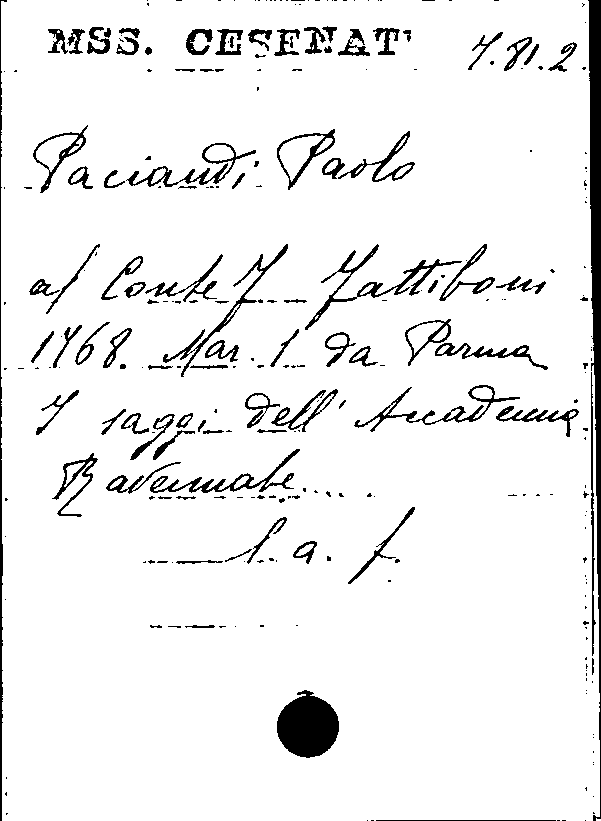 MSS. CESENAT'
7.81.2
Paciaudi Paolo
al Conte J Fattiboni
1768. Mar. 1 da Parma
I saggi dell' Accademia
Ravennate.
l. a. f.